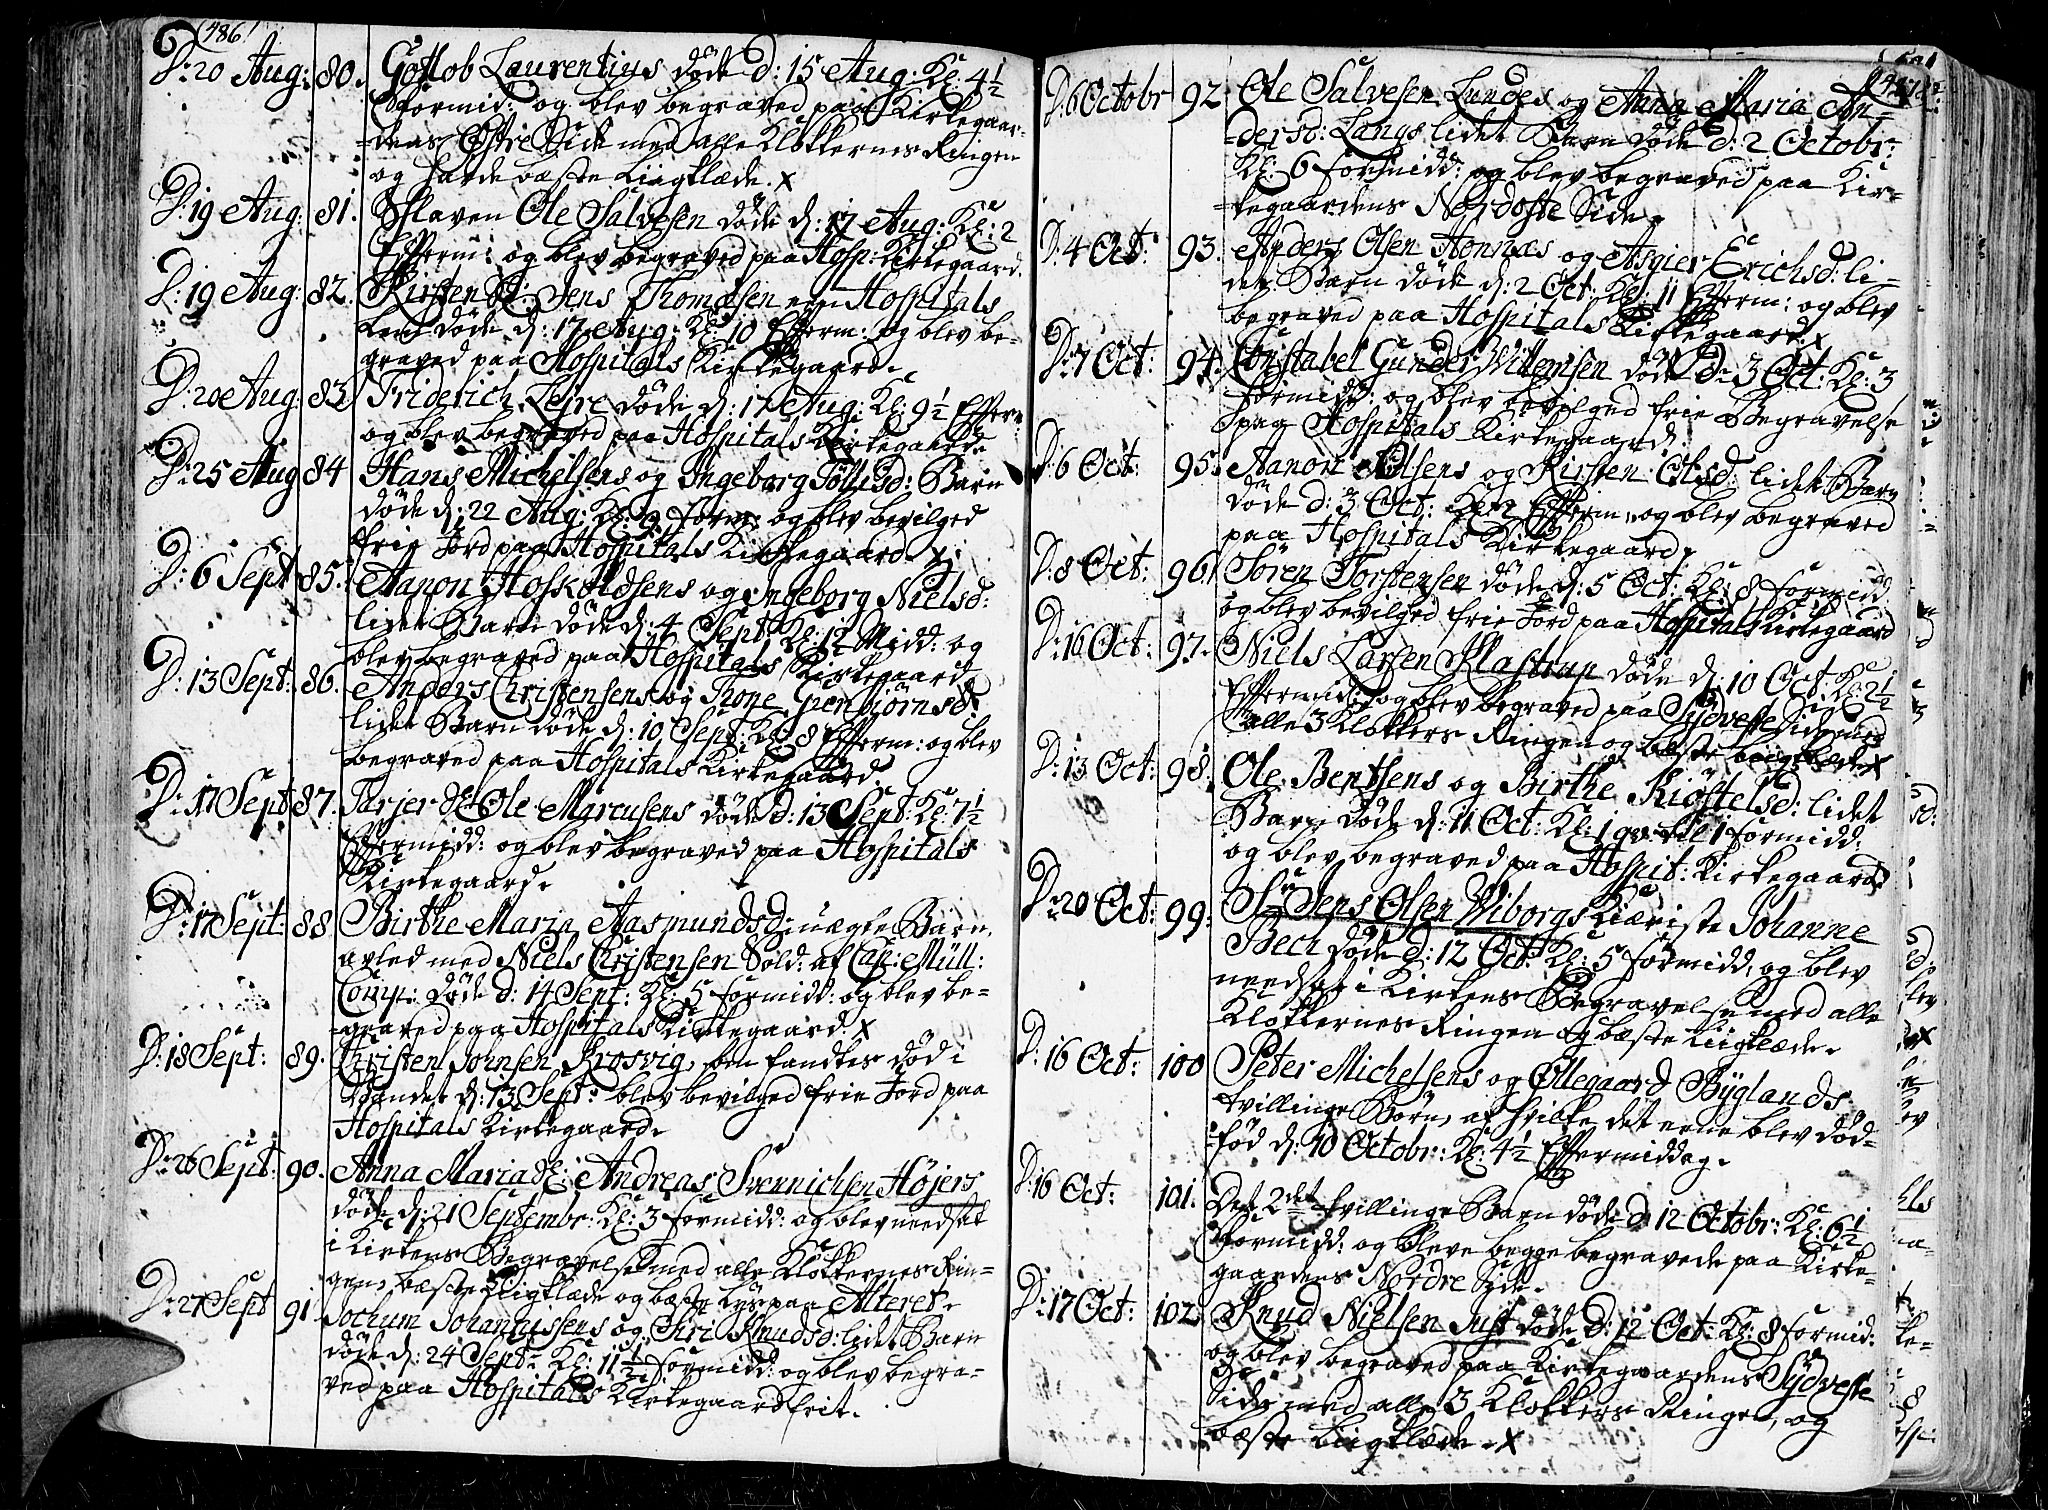 (486)
D: 20 Aug: 80. Gottlob Laurentius døde d: 15 Aug: Kl: 4½
Formid: og blev begraved paa Kirkegaar-
dens Østre Side med alle Klokkernes Ringen
og havde bæste Liigklæde. X
D: 19 Aug: 81. Slaven Ole Salvesen døde d: 17 Aug: Kl: 2
Efterm: og blev begraved paa Hosp: Kirkegaard.
D: 19 Aug: 82. Kirsten Jens Thomesen een Hospitals
Lem døde d: 17 Aug: Kl: 10 Efterm: og blev be-
graved paa Hospitals Kirkegaard.
D: 20 Aug: 83. Friderich Lejre døde d: 17 Aug: Kl: 9½ Efterm
og blev begraved paa Hospitals Kirkegaard
D: 25 Aug 84 Hans Michelsens og Ingeborg Tollisd: Barn
døde d: 22 Aug: Kl: 9 form: og blev bevilged
frie Jord paa Hospitals Kirkegaard. X
D: 6 Sept 85. Aanon Hoskoldsens og Ingeborg Nielsd:
lidet Barn døde d: 4 Sept: Kl: 12 Midd: og
blev begraved paa Hospitals Kirkegaard
D: 13 Sept: 86. Anders Christensens og Thone Guenbjörnsd:
lidet Barn døde d: 10 Sept: Kl: 8 Efterm: og blev
begraved paa Hospitals Kirkegaard.
D: 17 Sept 87. Tarjer Ole Marcusens døde d: 13 Sept: Kl: 7½
Eftermidd: og blev begraved paa Hospitals
Kirkegaard.
D: 17 Sept: 88. Birthe Maria Aasmundsd: uægte Barn,
avled med Niels Christensen Sold: af Cap: Müll:
Comp: døde d: 14 Sept: Kl: 5 formidd: og blev be-
graved paa Hospitals Kirkegaard. X
D: 18 Sept: 89. Christen Johnsen Krosvig, som fandtes død i
Vandet d: 13 Sept: blev bevilged frie Jord paa
Hospitals Kirkegaard.
D: 26 Sept: 90. Anna Maria Andreas Svennichsen Højers
døde d: 21 Septembr: Kl: 3 formidd: og blev needsat
i Kirkens Begravelse med alle Klokkernes Rin-
gen, bæste Liigklæde og bæste Lys paa Alteret.
D: 27 Sept 91. Jochum Johannissens og Siri Knudsd: lidet Barn
døde d: 24 Sept: Kl: 11½ formidd: og blev begra-
ved paa Hospitals Kirkegaard frit.
D: 6 Octobr 92. Ole Salvesen Lundes og Anna Maria An-
dersd: Langs lidet Barn døde d: 2 Octobr:
Kl: 6 formidd: og blev begraved paa Kir-
kegaardens Nordoste Side.
D: 4 Oct: 93. Anders Olsen Honnæs og Asgier Erichsd: li-
det Barn døde d: 2 Oct: Kl: 11 Efterm: og blev
begraved paa Hospitals Kirkegaard. X
D: 7 Oct: 94. Constabel Gunder Willemsen døde d: 3 Oct: Kl: 3
formidd: og blev bevilged frie Begravelse
paa Hospitals Kirkegaard.
D: 6 Oct: 95. Aanon Olsens og Kirsten Olsd: lidet Barn
døde d: 3 Oct: Kl: 2 Efterm: og blev begraved
paa Hospitals Kirkegaard.
D: 8 Oct: 96. Søren Torstensen døde d: 5 Oct: Kl: 8 formidd
og blev bevilged frie Jord paa Hospitals Kirkegaard
D: 16 Oct: 97. Niels Larsen Klastrup døde d: 10 Oct: Kl: 2½
Eftermid: og blev begraved paa Sydveste Side med
alle 3 Klokkers Ringen og bæste Liigklæde X
D: 13 Oct: 98. Ole Bentsens og Birthe Kiøstelsd: lidet
Barn døde d: 11 Oct: Kl: 1 qv: til 1 formidd:
og blev begraved paa Hospit: Kirkegaard
D: 20 Oct: 99. Sr Jens Olsen Wiborgs Kiæriste Johanne
Bech døde d: 12 Oct: Kl: 5 formidd, og blev
needsat i Kirkens Begravelse med alle
Klokkernes Ringen og bæste Liigklæde.
D: 16 Oct: 100 Peter Michelsens og Ollegaard Byglands
tvillinge Børn, af hvilke det eene blev død-
fød d: 10 Octobr: Kl: 4½ Eftermiddag.
D: 16 Oct: 101. Det 2det tvillinge Barn døde d: 12 Octobr: Kl: 6½
Formidd: og bleve begge begravede paa Kirke-
gaardens Nordre Side.
D: 17 Oct: 102. Knud Nielsen Just døde d: 12 Oct: Kl: 8 formid:
og blev begraved paa Kirkegaardens Sydveste
Side med alle 3 Klokkers Ringen, og
bæste Liigklæde. X